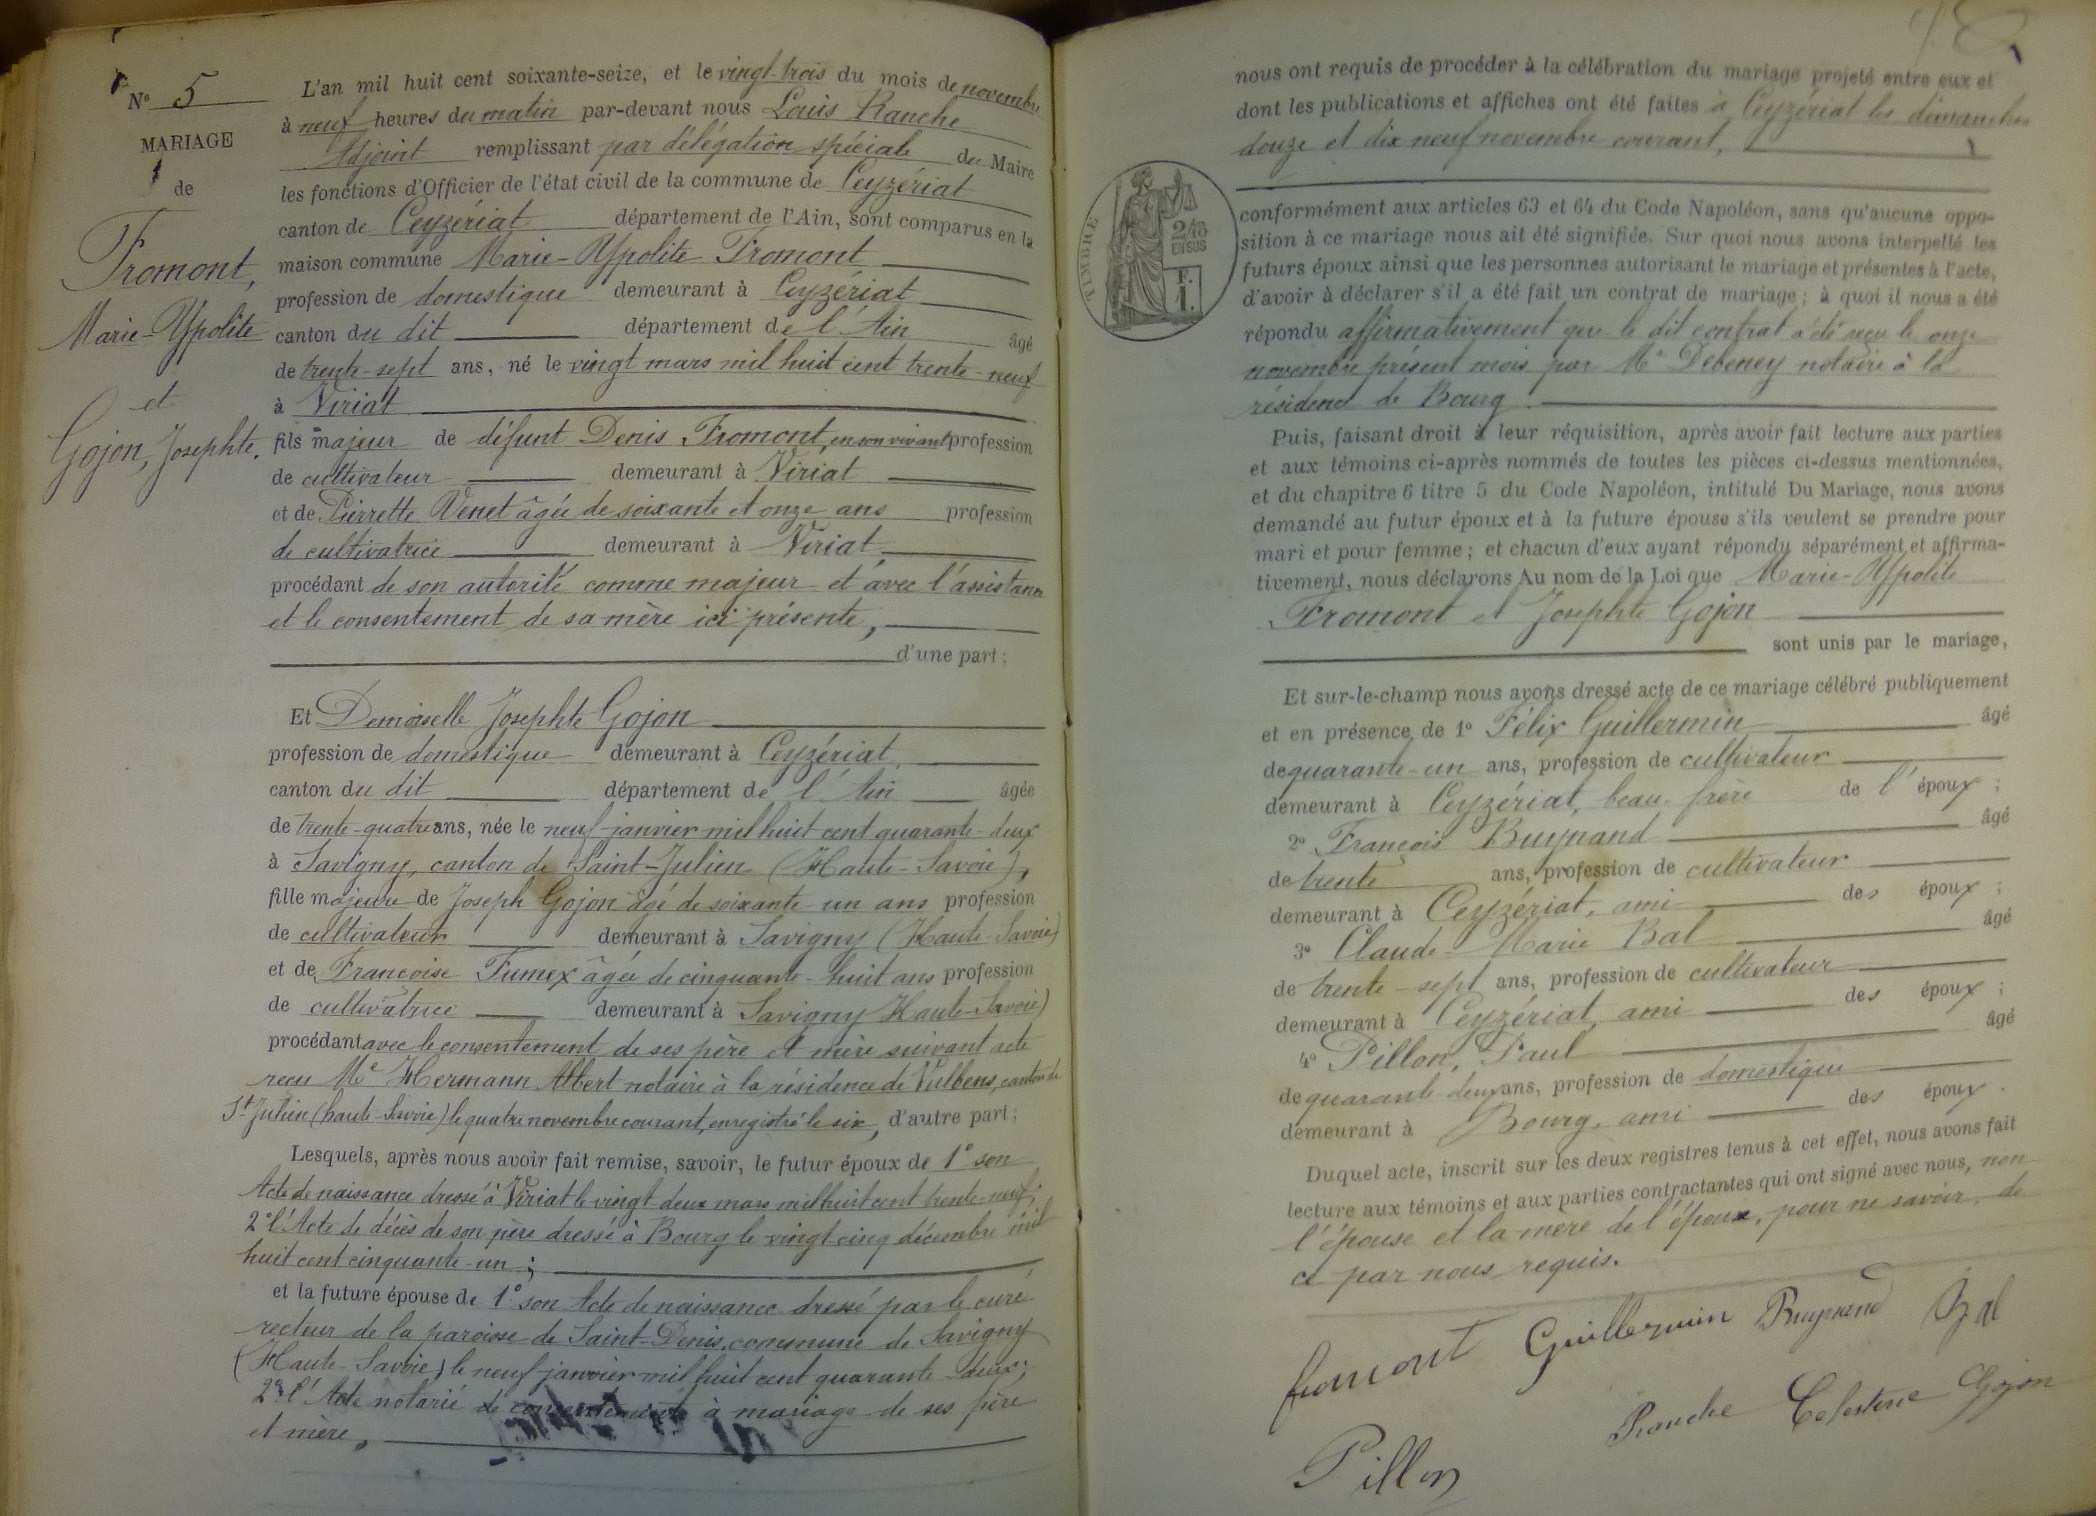 N° 5
MARIAGE
de
Fromont,
Marie-Ypolite
et
Gojon, Josephte.
L'an mil huit cent soixante-seize, et le vingt-trois du mois de novembre
à neuf heures du matin par-devant nous Louis Ranche
Adjoint remplissant par délégation spéciale du Maire
les fonctions d'Officier de l'état civil de la commune de Ceyzériat
canton de Ceyzériat département de l'Ain, sont comparus en la
maison commune Marie-Ypolite Fromont
profession de domestique demeurant à Ceyzériat
canton du dit département de l'Ain âgé
de trente-sept ans, né le vingt mars mil huit cent trente-neuf
à Viriat
fils majeur de défunt Denis Fromont, en son vivant profession
de cultivateur demeurant à Viriat
et de Pierrette Venet âgée de soixante et onze ans profession
de cultivatrice demeurant à Viriat
procédant de son autorité comme majeur et avec l'assistance
et le consentement de sa mère ici présente,
d'une part;
Et Demoiselle Josephte Gojon
profession de domestique demeurant à Ceyzériat
canton du dit département de l'Ain âgée
de trente-quatre ans, née le neuf janvier mil huit cent quarante-deux
à Savigny, canton de Saint-Julien (Haute-Savoie),
fille majeure de Joseph Gojon âgé de soixante-un ans profession
de cultivateur demeurant à Savigny (Haute-Savoie)
et de Françoise Fumex âgée de cinquante-huit ans profession
de cultivatrice demeurant à Savigny Haute-Savoie)
procédant avec le consentement de ses père et mère suivant acte
reçu Me Hermann Albert notaire à la résidence de Vulbens, canton de
St Julien (haute-Savoie) le quatre novembre courant, enregistré le six, d'autre part;
Lesquels, après nous avoir fait remise, savoir, le futur époux de 1° son
Acte de naissance dressé à Viriat le vingt deux mars mil huit cent trente-neuf;
2° l'Acte de décès de son père dressé à Bourg le vingt cinq décembre mil
huit cent cinquante-un;
et la future épouse de 1° son Acte de naissance dressé par le curé
recteur de la paroisse de Saint-Denis, commune de Savigny
(Haute-Savoie) le neuf janvier mil huit cent quarante-deux;
2° l'Acte notarié de consentement à mariage de ses père
et mère,
nous ont requis de procéder à la célébration du mariage projeté entre eux et
dont les publications et affiches ont été faites à Ceyzériat les dimanches
douze et dix neuf novembre courant,
TIMBRE
2/10
EN SUS
F.
1.
conformément aux articles 63 et 64 du Code Napoléon, sans qu'aucune oppo-
sition à ce mariage nous ait été signifiée. Sur quoi nous avons interpellé les
futurs époux ainsi que les personnes autorisant le mariage et présentes à l'acte,
d'avoir à déclarer s'il a été fait un contrat de mariage; à quoi il nous a été
répondu affirmativement que le dit contrat a été reçu le onze
novembre présent mois par Me Debeney notaire à la
résidence de Bourg.
Puis, faisant droit à leur réquisition, après avoir fait lecture aux parties
et aux témoins ci-après nommés de toutes les pièces ci-dessus mentionnées,
et du chapitre 6 titre 5 du Code Napoléon, intitulé Du Mariage, nous avons
demandé au futur époux et à la future épouse s'ils veulent se prendre pour
mari et pour femme; et chacun d'eux ayant répondu séparément et affirma-
tivement, nous déclarons Au nom de la Loi que Marie-Ypolite
Fromont et Josephte Gojon
sont unis par le mariage,
Et sur-le-champ nous avons dressé acte de ce mariage célébré publiquement
et en présence de 1° Félix Guillermin âgé
de quarante-un ans, profession de cultivateur
demeurant à Ceyzériat, beau-frère de l'époux;
2° François Buynand âgé
de trente ans, profession de cultivateur
demeurant à Ceyzériat, ami des époux;
3° Claude-Marie Bal âgé
de trente-sept ans, profession de cultivateur
demeurant à Ceyzériat, ami des époux;
4° Pillon, Paul âgé
de quarante deux ans, profession de domestique
demeurant à Bourg, ami des époux.
Duquel acte, inscrit sur les deux registres tenus à cet effet, nous avons fait
lecture aux témoins et aux parties contractantes qui ont signé avec nous, non
l'épouse et la mère de l'époux, pour ne savoir, de
ce par nous requis.
fromont Guillermin Buynand Bal
Ranche Celestine Gojon
Pillon